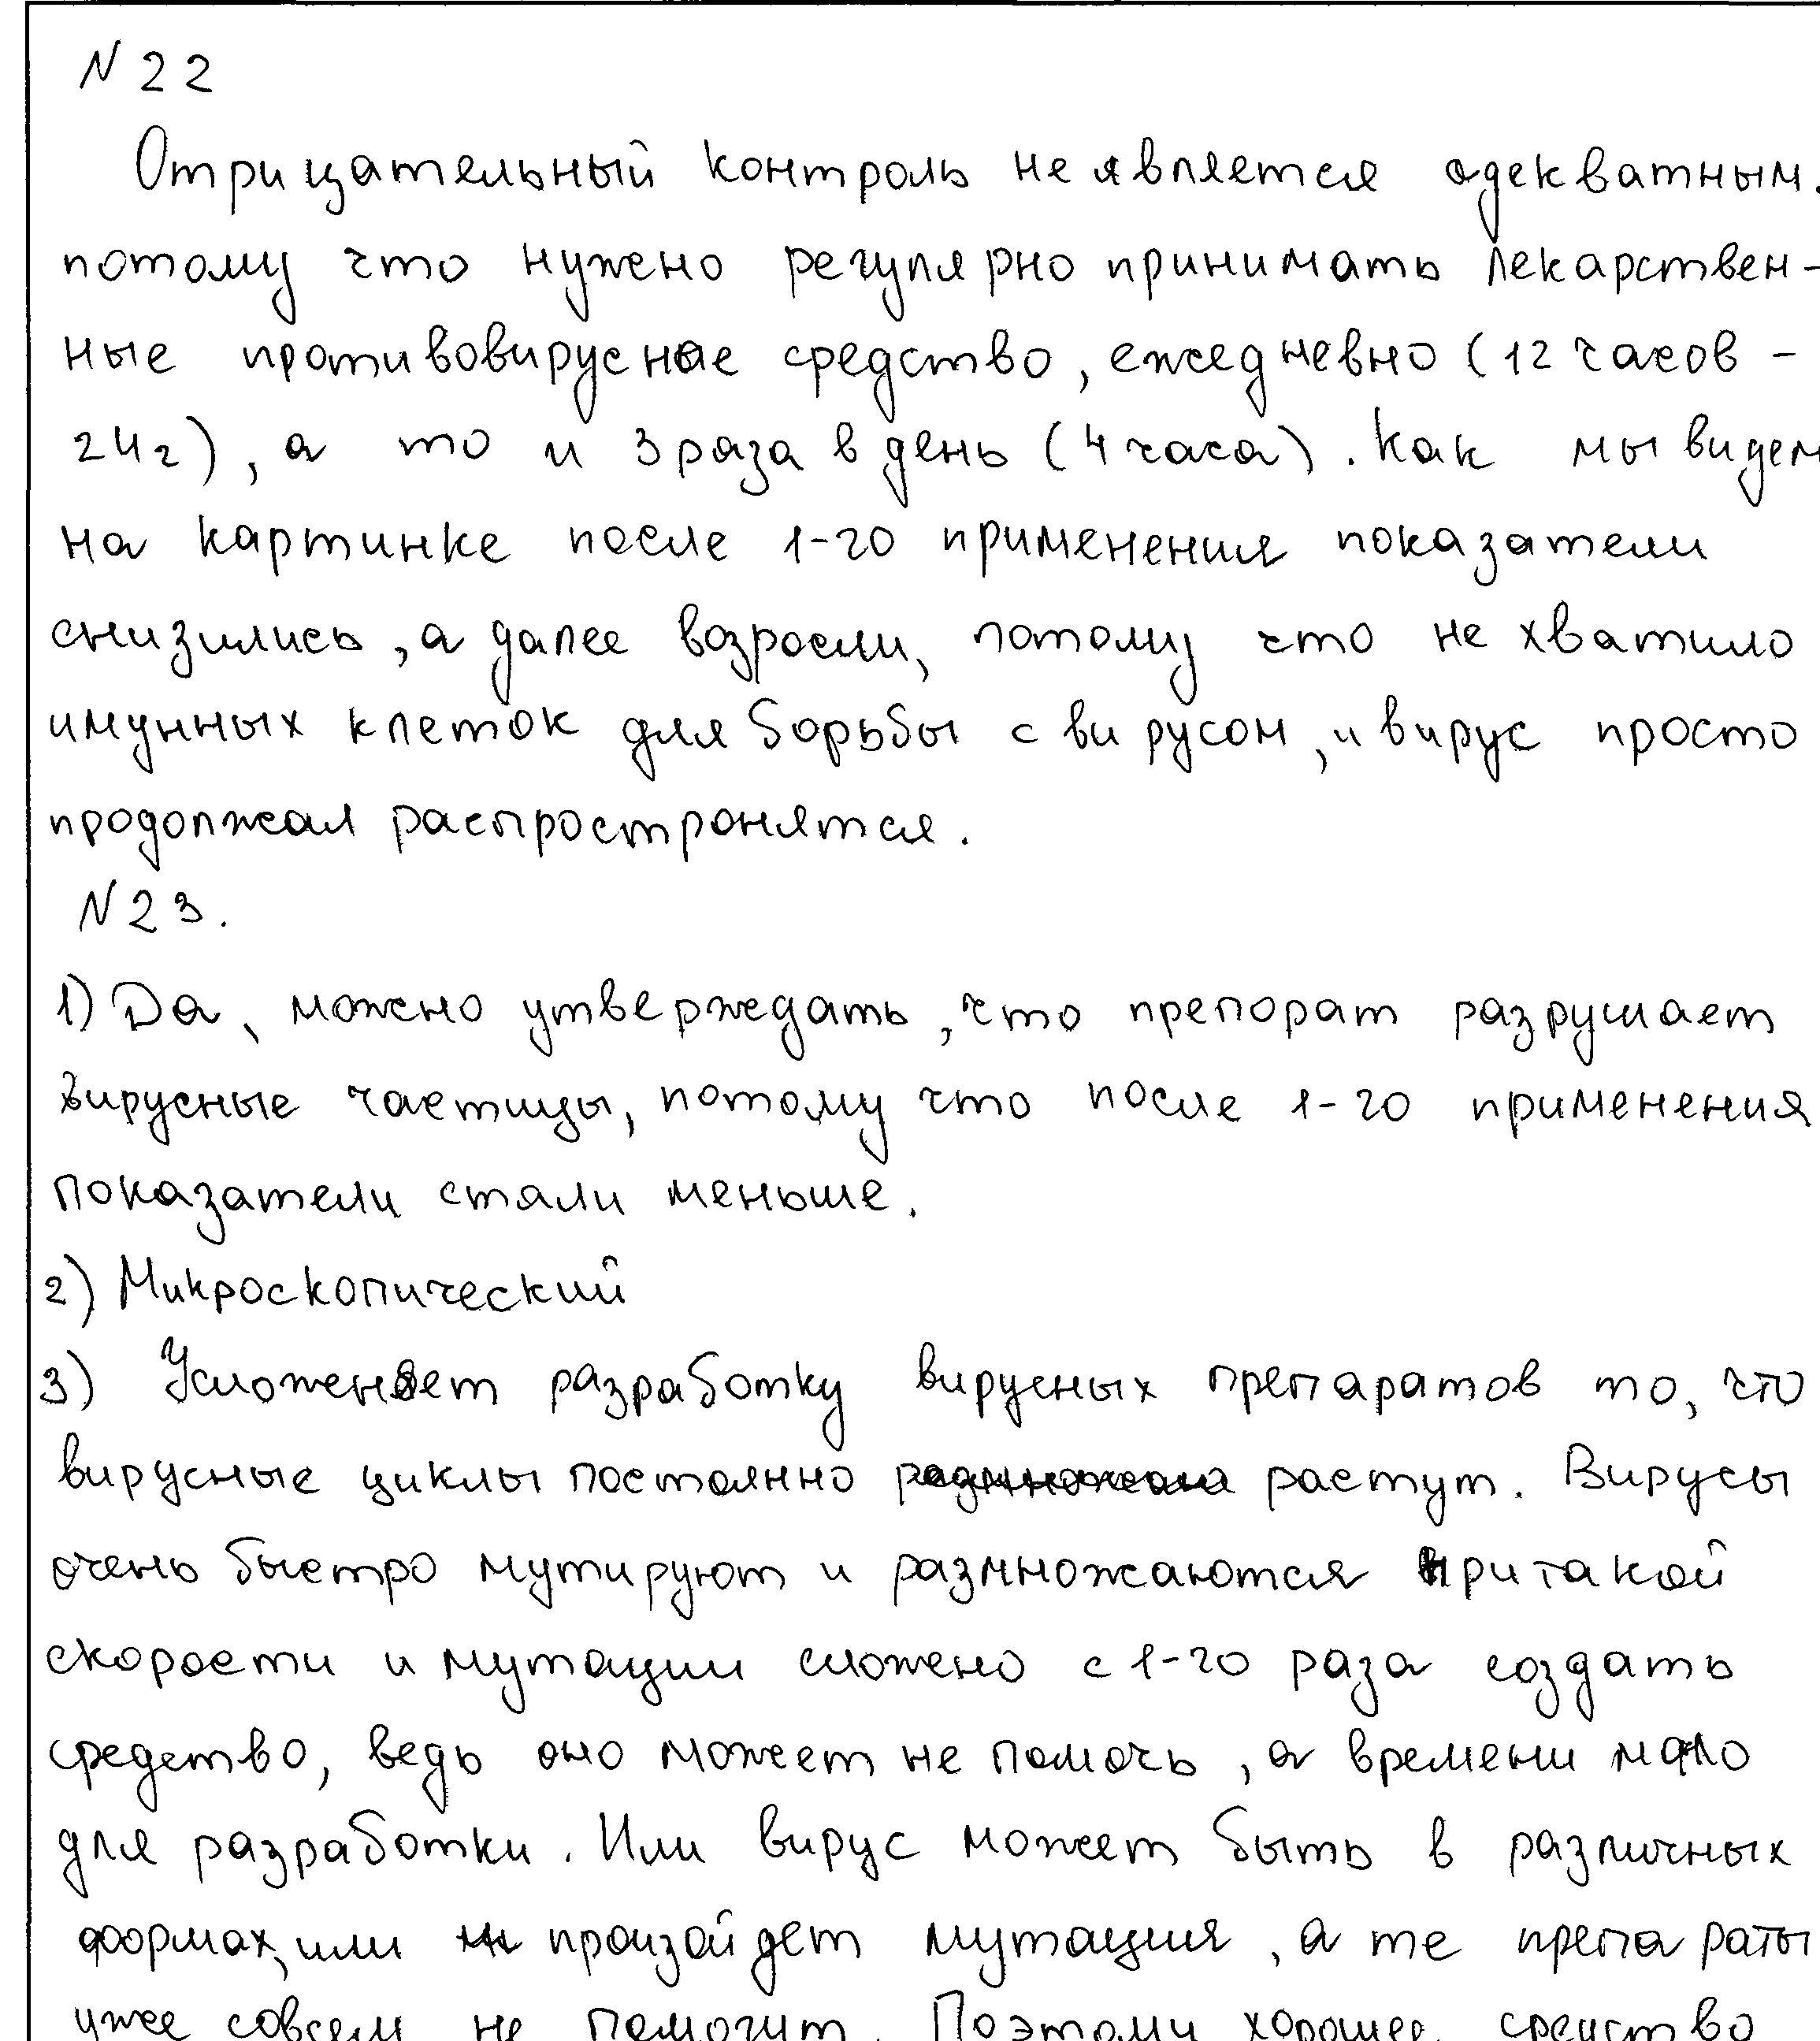 N 22
Отрицательный контроль не является адекватным.
потому что нужено регулярно принимать лекарствен-
ные противовирусное средство, ежедневно (12 часов -
24г), а то и 3 раза в день (4 часа). Как мы видем
на картинке после 1-го применения показатели
снизились, а далее возросли, потому что не хватило
имунных клеток для борьбы с вирусом, и вирус просто
продолжал распространятся.
N 23.
1) Да, можно утверждать, что препорат разрушает
вирусные частицы, потому что после 1-го применения
показатели стали меньше.
2) Микроскопический
3) Усложеняет разработку вирусных препаратов то, что
вирусные циклы постоянно растут. Вирусы
очень быстро мутируют и размножаются при такой
скорости и мутации сложено с 1-го раза создать
средство, ведь оно может не помочь, а времени мало
для разработки. Или вирус может быть в различных
формах, или произойдет мутация, а те препараты
уже совсем не помогут. Поэтому хорошее средство